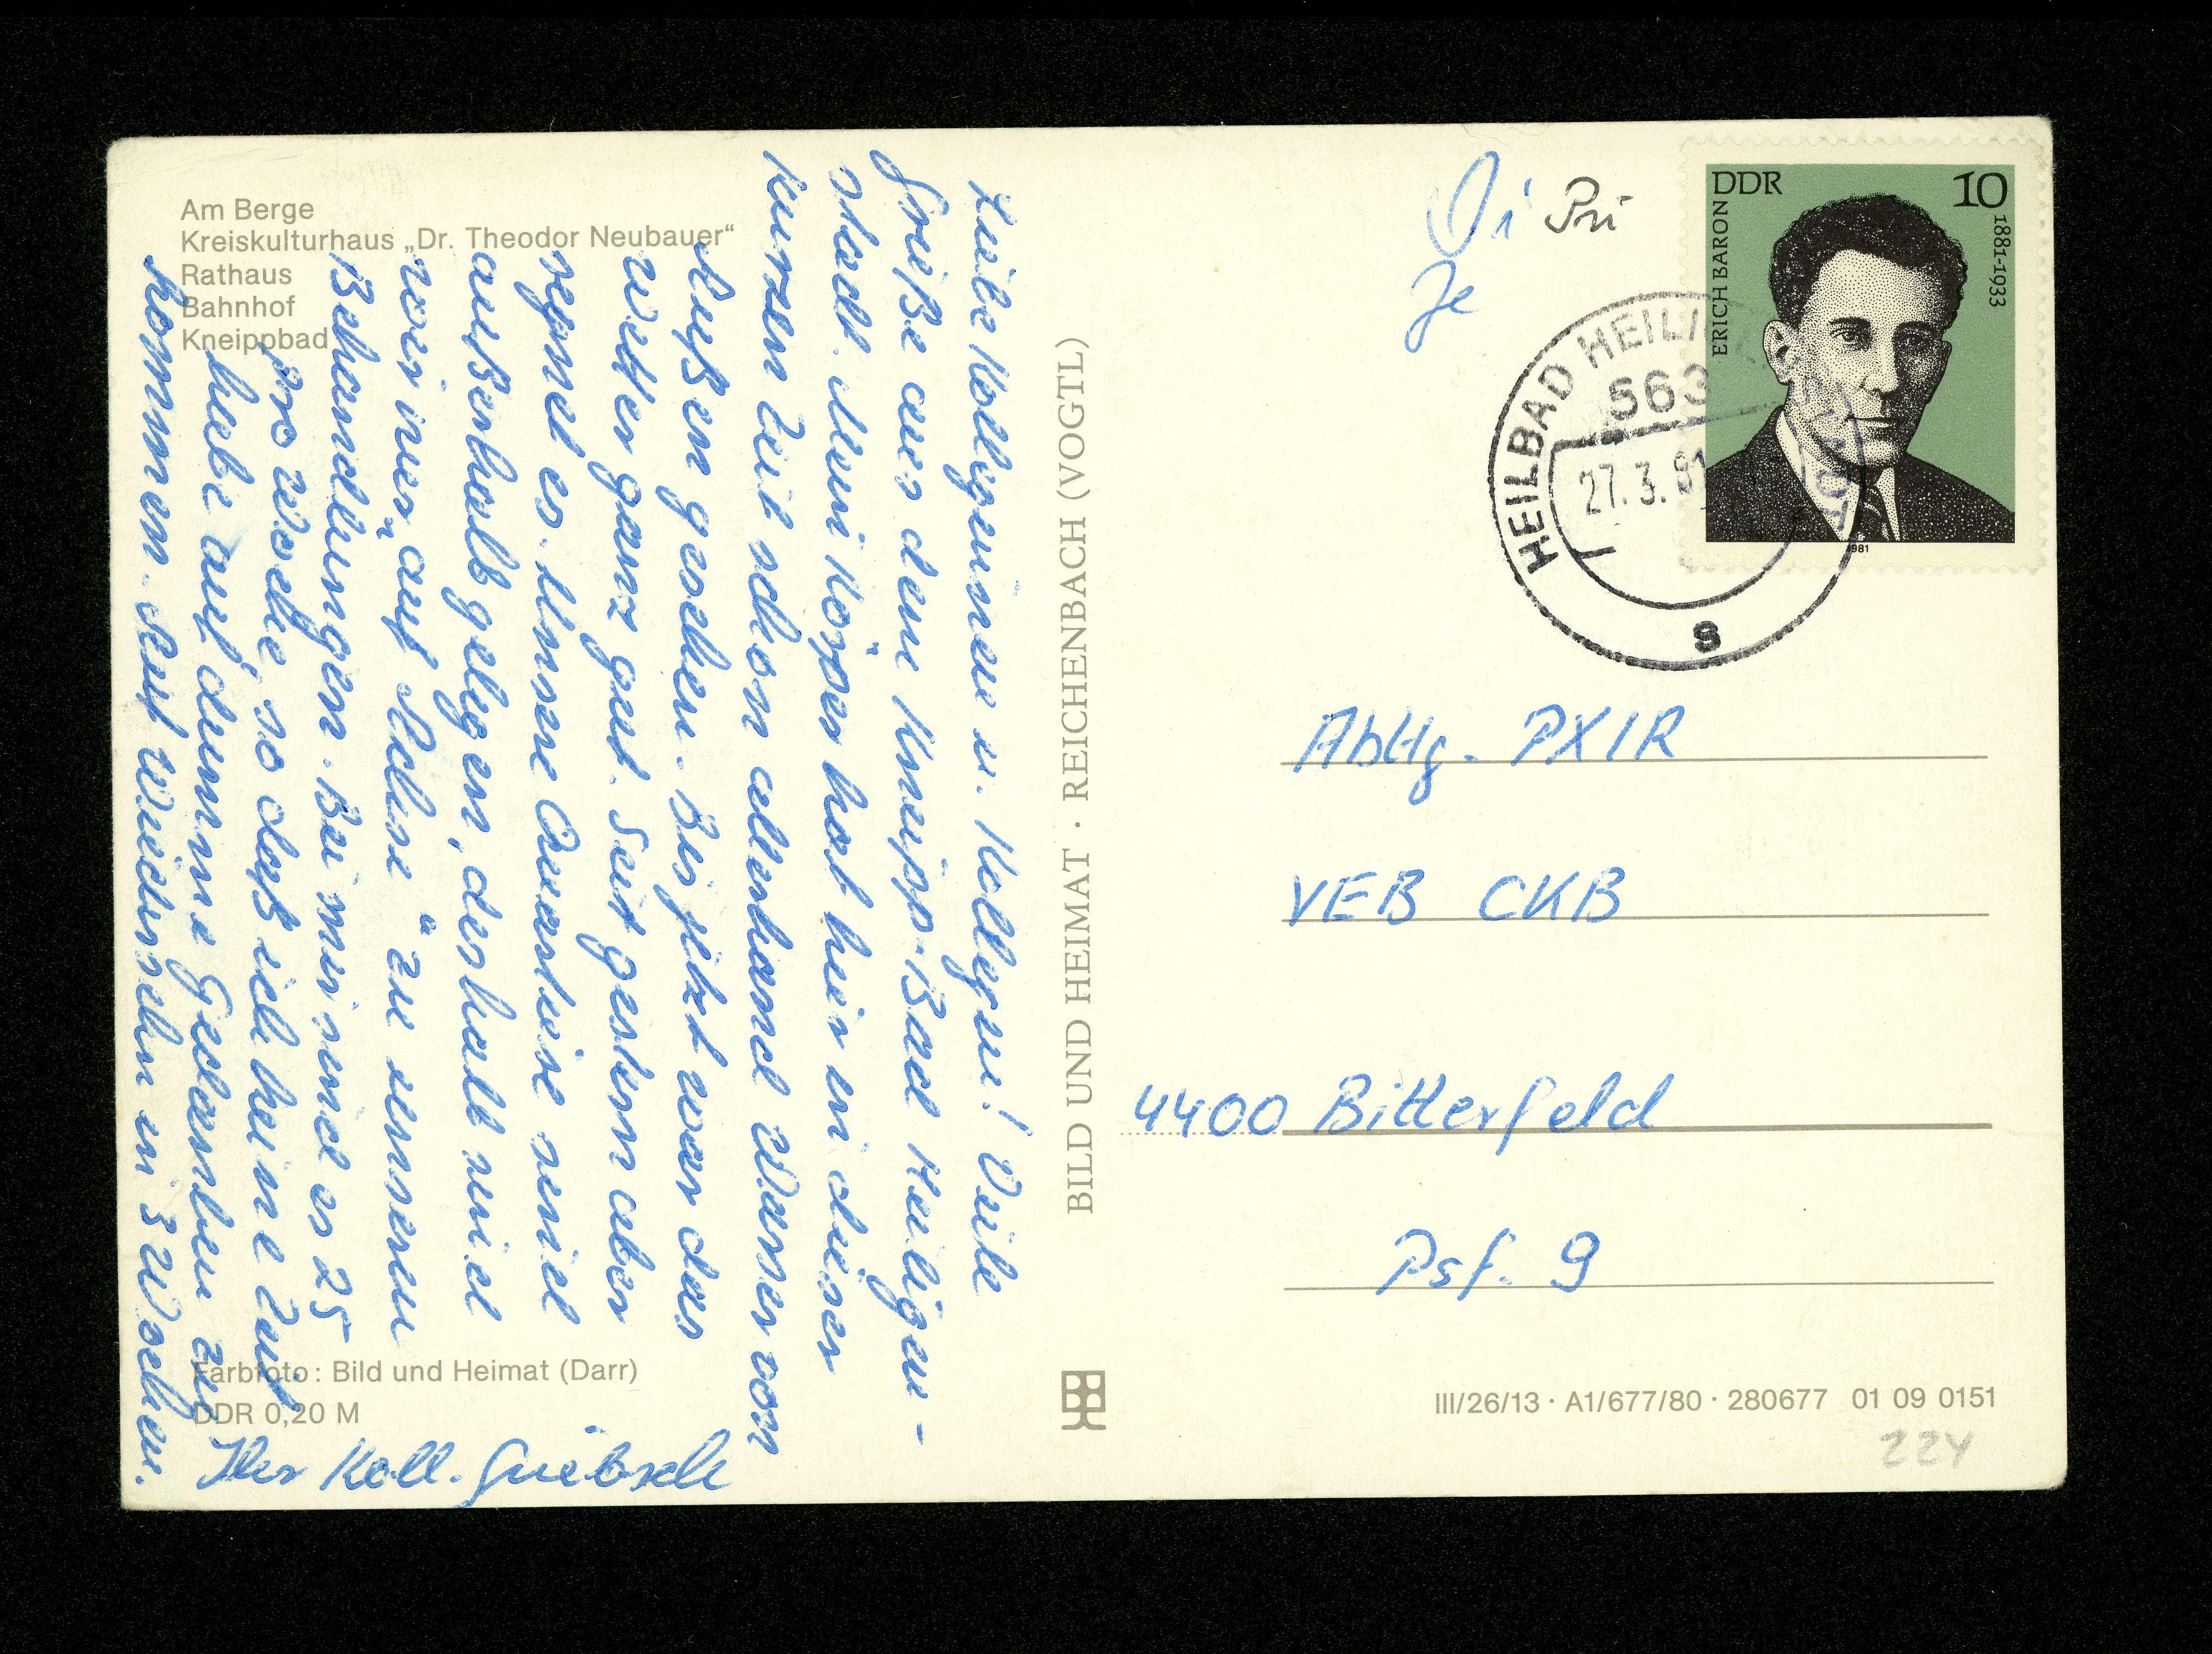 Am Berge
Kreiskulturhaus „Dr. Theodor Neubauer“
Rathaus
Bahnhof
Kneippbad
Liebe Kolleginnen u. Kollegen! Viele
Grüße aus dem Kneipp-Bad Heiligen-
stadt. Mein Körper hat hier in dieser
kurzen Zeit schon allerhand Wasser von
Außen gesehen. Bis jetzt war das
Wetter ganz gut. Seit gestern aber
regnet es. Unsere Quartiere sind
außerhalb gelegen, deshalb sind
wir immer „auf Achse“ zu unseren
Behandlungen. Bei mir sind es 25
pro Woche, so daß ich keine Zeit
habe auf dumme Gedanken zu
kommen. Auf Wiedersehn in 3 Wochen.
Ihr Koll. Griebsch
Farbfoto: Bild und Heimat (Darr)
DDR 0,20 M
BILD UND HEIMAT · REICHENBACH (VOGTL)
Pri
DDR 10
ERICH BARON 1881-1933
1981
HEILBAD HEILIGENSTADT
563
27.3.81
s
Abtlg. PXIR
VEB CKB
4400 Bitterfeld
Psf. 9
III/26/13 · A1/677/80 · 280677 01 09 0151
224